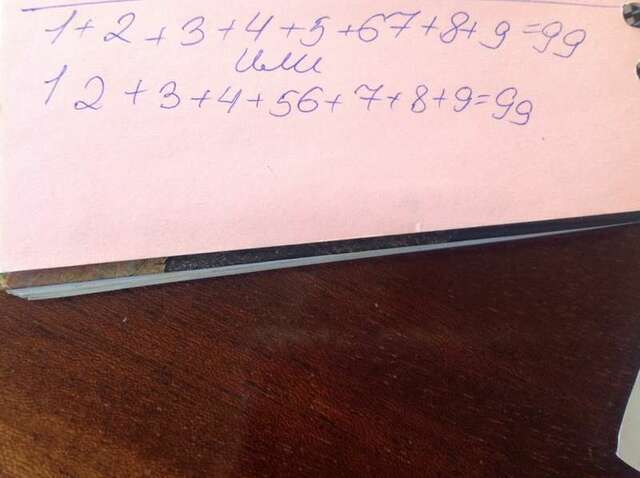 1+2+3+4+5+67+8+9=99
или
12+3+4+56+7+8+9=99